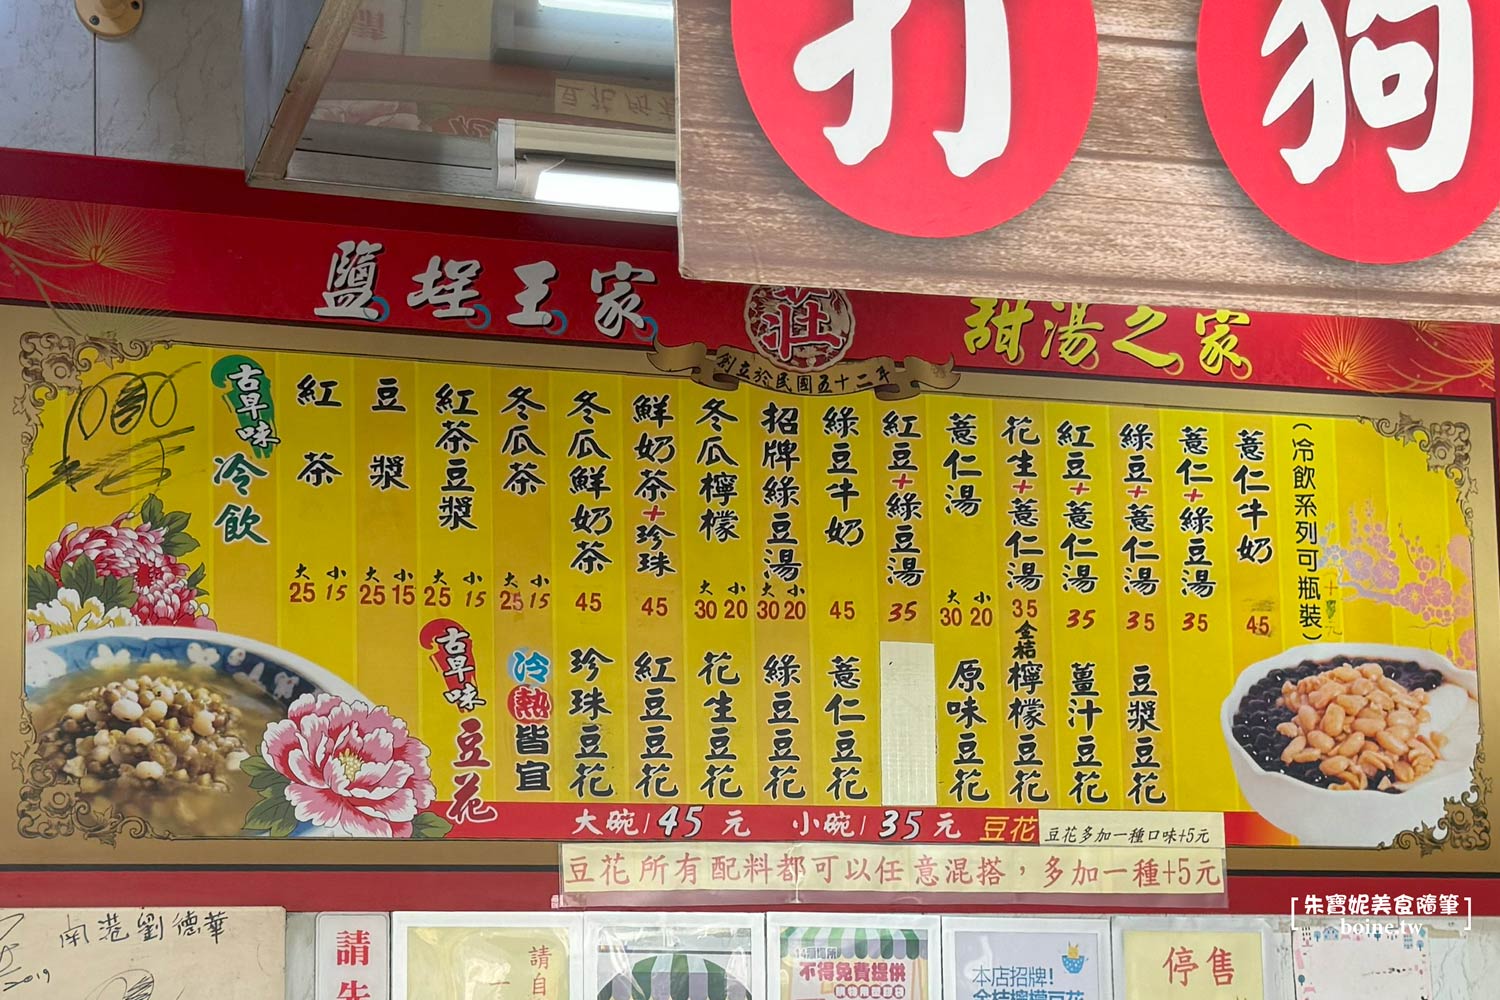 打狗
鹽埕王家
甜湯之家
莊
創立於民國五十二年
古早味
冷飲
紅茶 大25 小15
豆漿 大25 小15
紅茶豆漿 大25 小15
冬瓜茶 大25 小15
冬瓜鮮奶茶 45
鮮奶茶+珍珠 45
冬瓜檸檬 大30 小20
招牌綠豆湯 大30 小20
綠豆牛奶 45
紅豆+綠豆湯 35
薏仁湯 大30 小20
花生+薏仁湯 35
紅豆+薏仁湯 35
綠豆+薏仁湯 35
薏仁+綠豆湯 35
薏仁牛奶 45
(冷飲系列可瓶裝)
古早味
豆花
冷熱皆宜
珍珠豆花
紅豆豆花
花生豆花
綠豆豆花
薏仁豆花
原味豆花
金桔檸檬豆花
薑汁豆花
豆漿豆花
大碗/45元 小碗/35元 豆花
豆花多加一種口味+5元
豆花所有配料都可以任意混搭，多加一種+5元
朱寶妮美食隨筆
boine.tw
南港劉德華
2019
請
請自
不得免費提供
本店招牌!
停售